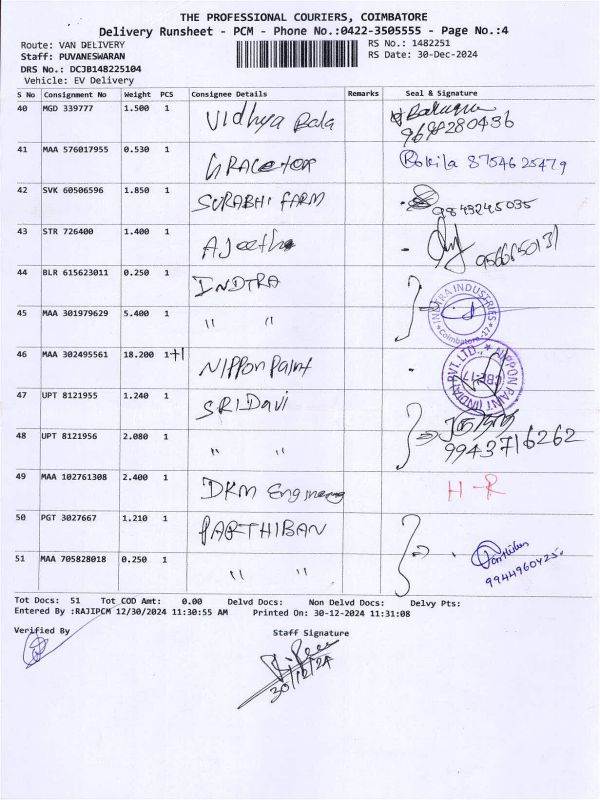 THE PROFESSIONAL COURIERS, COIMBATORE
Delivery Runsheet - PCM - Phone No.:0422-3505555 - Page No.:4
Route: VAN DELIVERY
RS No.: 1482251
Staff: PUVANESWARAN
RS Date: 30-Dec-2024
DRS No.: DCJB148225104
Vehicle: EV Delivery
S No Consignment No Weight PCS Consignee Details Remarks Seal & Signature
40 MGD 339777 1.500 1 Vidhya Bala
9698280436
41 MAA 576017955 0.530 1 GRACETOX Rokila 8754625479
42 SVK 60506596 1.850 1 SURABHI FARM 9843245035
43 STR 726400 1.400 1 AJeeth
44 BLR 615623011 0.250 1 INDTRA
INDTRA INDUSTRIES
Coimbatore-17
45 MAA 301979629 5.400 1 " "
46 MAA 302495561 18.200 1+1 NIPPon Paint
NIPPON PAINT (INDIA) PVT. LTD.,
CBE-17
47 UPT 8121955 1.240 1 SRI Davi
48 UPT 8121956 2.080 1 " " 9943716262
49 MAA 102761308 2.400 1 DKM Engineering H-R
50 PGT 3027667 1.210 1 PARTHIBAN
51 MAA 705828018 0.250 1 " " 9944960425.
Tot Docs: 51 Tot COD Amt: 0.00 Delvd Docs: Non Delvd Docs: Delvy Pts:
Entered By :RAJIPCM 12/30/2024 11:30:55 AM Printed On: 30-12-2024 11:31:08
Verified By Staff Signature
30/12/24